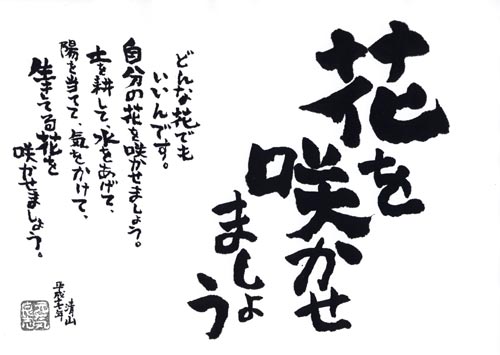 花を
咲かせ
ましょう
どんな花でも
いいんです。
自分の花を咲かせましょう。
土を耕して、水をあげて、
陽を当てて、気をかけて、
生きてる花を
咲かせましょう。
平成十七年
清山